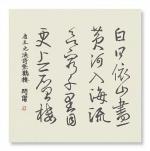 白日依山盡
黄河入海流
欲窮千里目
更上一層樓
唐王之渙詩登鸛雀樓